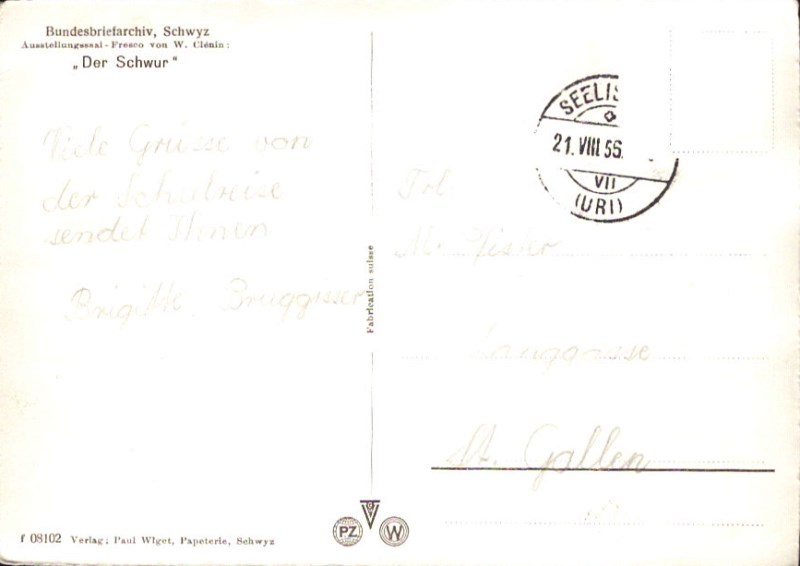 Bundesbriefarchiv, Schwyz
Ausstellungssaal - Fresco von W. Clénin:
„Der Schwur"
Viele Grüsse von
der Schulreise
sendet Ihnen
Brigitte Bruggisser
Fabrication suisse
SEELIS
21. VIII 56.
VII
(URI)
Frl.
M. Pfister
Langgasse
St. Gallen
PZ
W
f 08102 Verlag: Paul Wiget, Papeterie, Schwyz